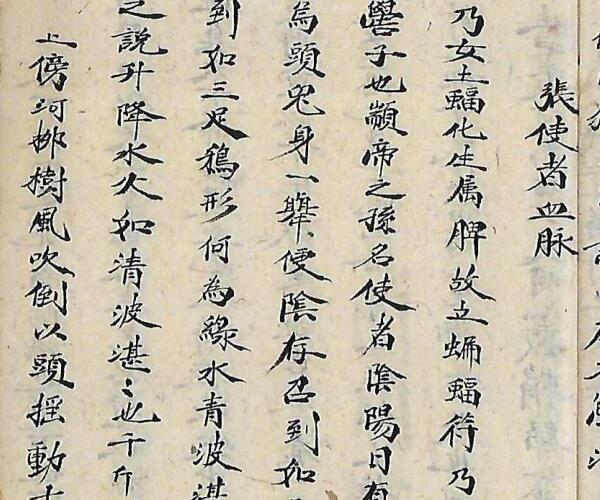 張使者血脉
乃女土蝠化生属脾故立蝙蝠符乃
嚳子也顓帝之孫名使者陰陽日有
烏頭鬼身一舉便陰存召到如
到如三足鴉形何為綠水青波湛
之說升降水火如清波湛〻也千斤
上傍河柳樹風吹倒以頭摇動